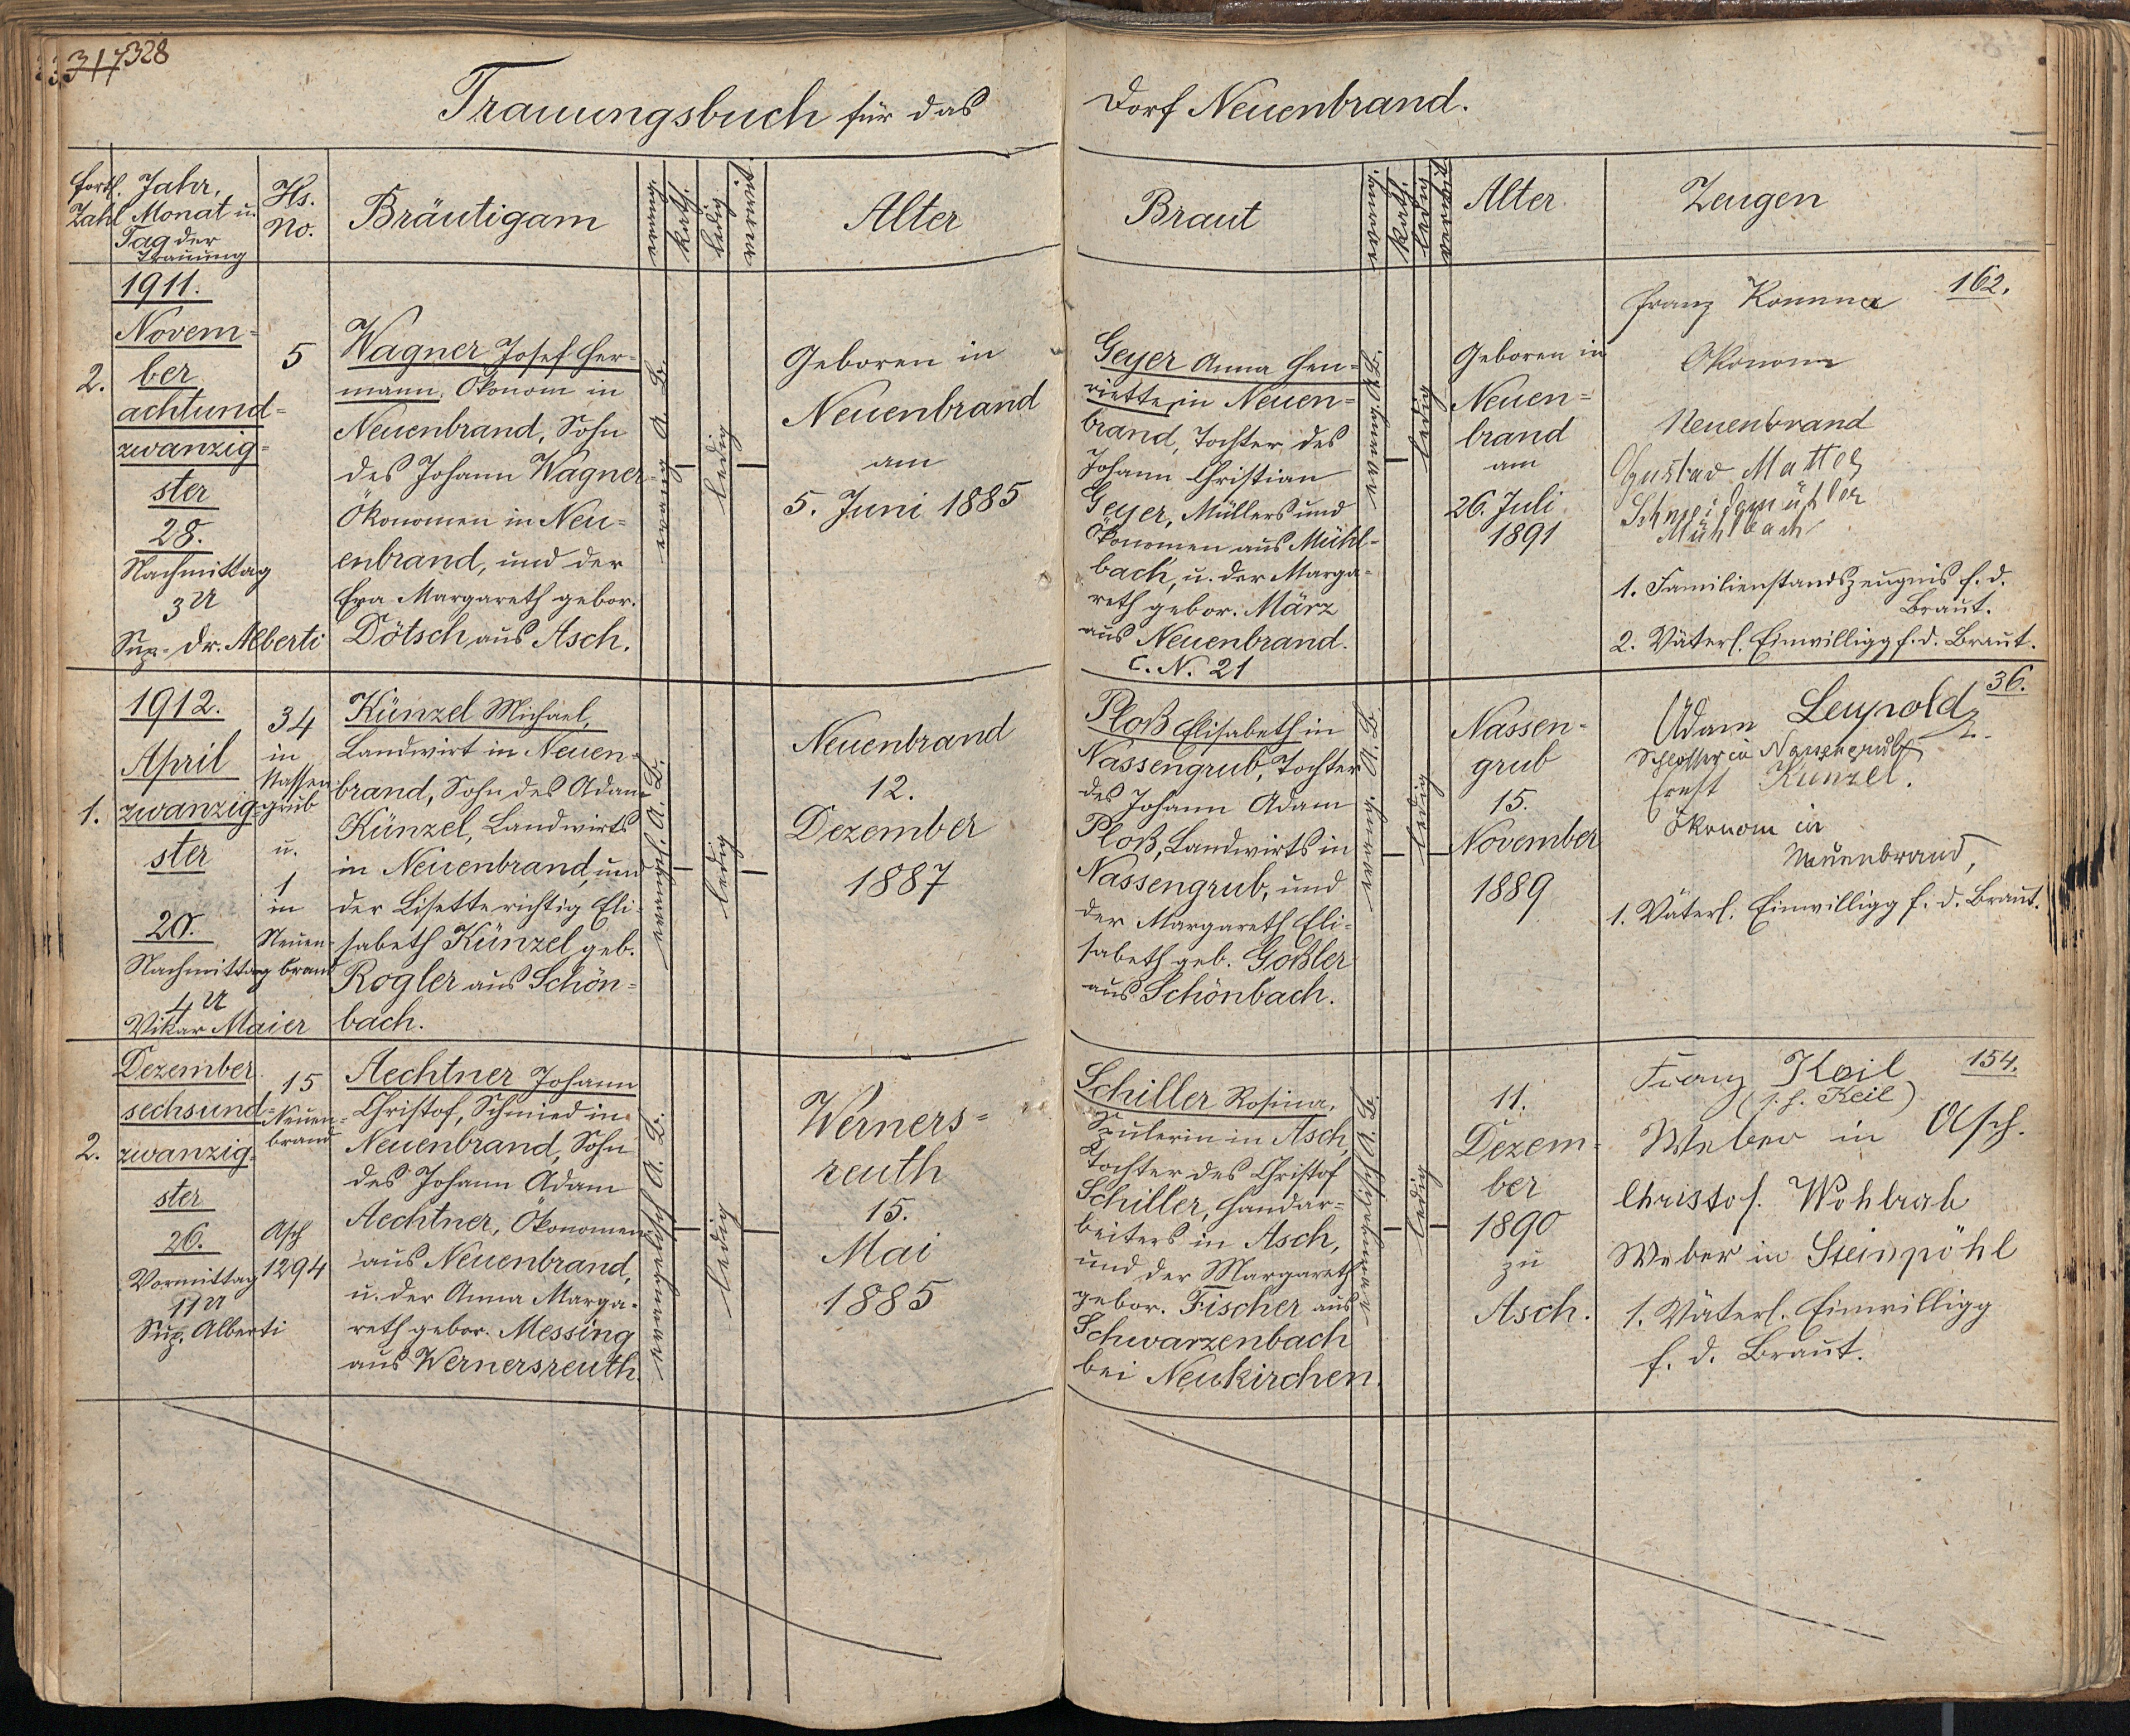 317 328
Trauungsbuch für das
Dorf Neuenbrand.
fortl. Zahl
Jahr,
Monat u.
Tag der
Trauung
Hs.
No.
Bräutigam
evang.
kath.
ledig
verwit.
Alter
Braut
evang.
kath.
ledig
verwit.
Alter
Zeugen
2.
1911.
Novem-
ber
achtund-
zwanzig-
ster
28.
Nachmittag
3 U
Sup. Dr. Alberti
5
Wagner Josef Her-
mann, Ökonom in
Neuenbrand, Sohn
des Johann Wagner
Ökonomen in Neu-
enbrand, und der
Eva Margareth gebor.
Dötsch aus Asch.
evang. A. B.
ledig
Geboren in
Neuenbrand
am
5. Juni 1885
Geyer Anna Hen-
riette, in Neuen-
brand, Tochter des
Johann Christian
Geyer, Müllers und
Ökonomen aus Mühl-
bach, u. der Marga-
reth gebor. März
aus Neuenbrand.
C. N. 21
evang. A. B.
ledig
Geboren in
Neuen-
brand
am
26. Juli
1891
162.
Franz
Ökonom
Neuenbrand
Gustav
Schneidemüller
Mühlbach
1. Familienstandszeugnis f. d.
Braut.
2. Väterl. Einwilligg f. d. Braut.
1.
1912.
April
zwanzig-
ster
20.
Nachmittag
4 U
Vikar Maier
34
in
Nassen-
grub
u.
1
in
Neuen-
brand
Künzel Michael,
Landwirt in Neuen-
brand, Sohn des Adam
Künzel, Landwirts
in Neuenbrand, und
der Lisette richtig Eli-
sabeth Künzel geb.
Rogler aus Schön-
bach.
evangl. A. B.
ledig
Neuenbrand
12.
Dezember
1887
Ploß Elisabeth in
Nassengrub, Tochter
des Johann Adam
Ploß, Landwirts in
Nassengrub, und
der Margareth Eli-
sabeth geb. Goßler
aus Schönbach.
evang. A. B.
ledig
Nassen-
grub
15.
November
1889
36.
Adam Leupold
Schlosser in Nassengrub
Ernst Künzel.
Ökonom in
Neuenbrand,
1. Väterl. Einwilligg f. d. Braut.
2.
Dezember
sechsund-
zwanzig-
ster
26.
Vormittag
11 U
Sup. Alberti
15
Neuen-
brand
Asch
1294
Aechtner Johann
Christof, Schmied in
Neuenbrand, Sohn
des Johann Adam
Aechtner, Ökonomen
aus Neuenbrand,
u. der Anna Marga-
reth gebor. Messing
aus Wernersreuth.
evangelisch A. B.
ledig
Werners-
reuth
15.
Mai
1885
Schiller Rosina,
Spulerin in Asch,
Tochter des Christof
Schiller, Handar-
beiters in Asch,
und der Margareth
gebor. Fischer aus
Schwarzenbach
bei Neukirchen.
evangelisch A. B.
ledig
11.
Dezem-
ber
1890
zu
Asch.
154.
Franz Keil
(s. h. Keil)
Weber in Asch.
Christof. Wohlrab
Weber in Steinpöhl
1. Väterl. Einwilligg
f. d. Braut.